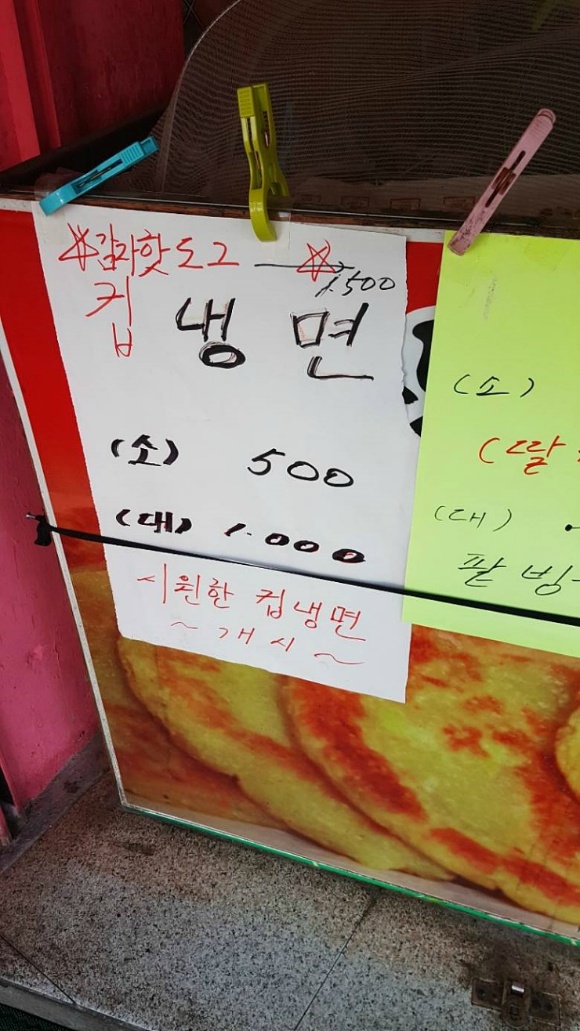 ☆감자핫도그 ☆ 1,500
컵 냉면
(소) 500
(대) 1.000
시원한 컵냉면
~ 개시 ~
(소)
(딸
(대)
팥빙